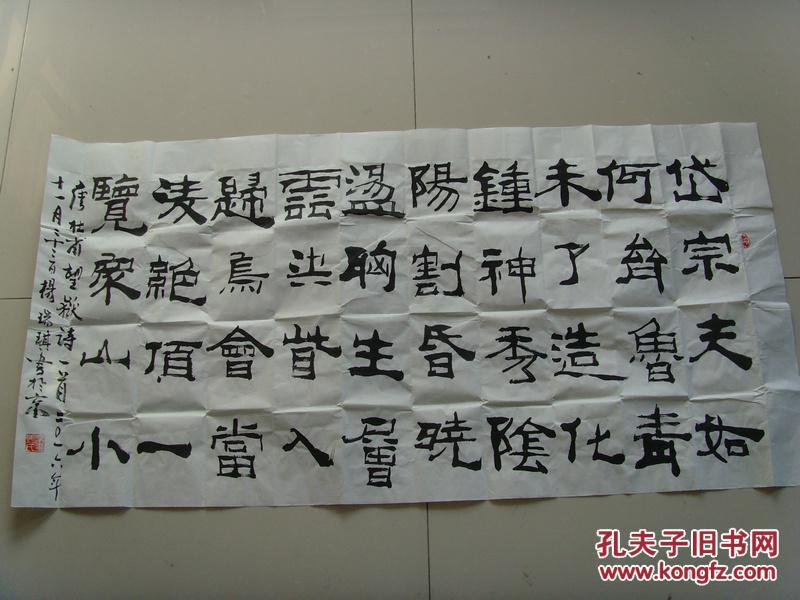 岱宗夫如
何齊魯青
未了造化
鍾神秀陰
陽割昏曉
盪胸生層
雲決眥入
歸鳥會當
凌絕頂一
覽眾山小
唐杜甫望嶽詩一首二〇〇六年
十一月 日楊瑞 書於京
孔夫子旧书网
www.kongfz.com